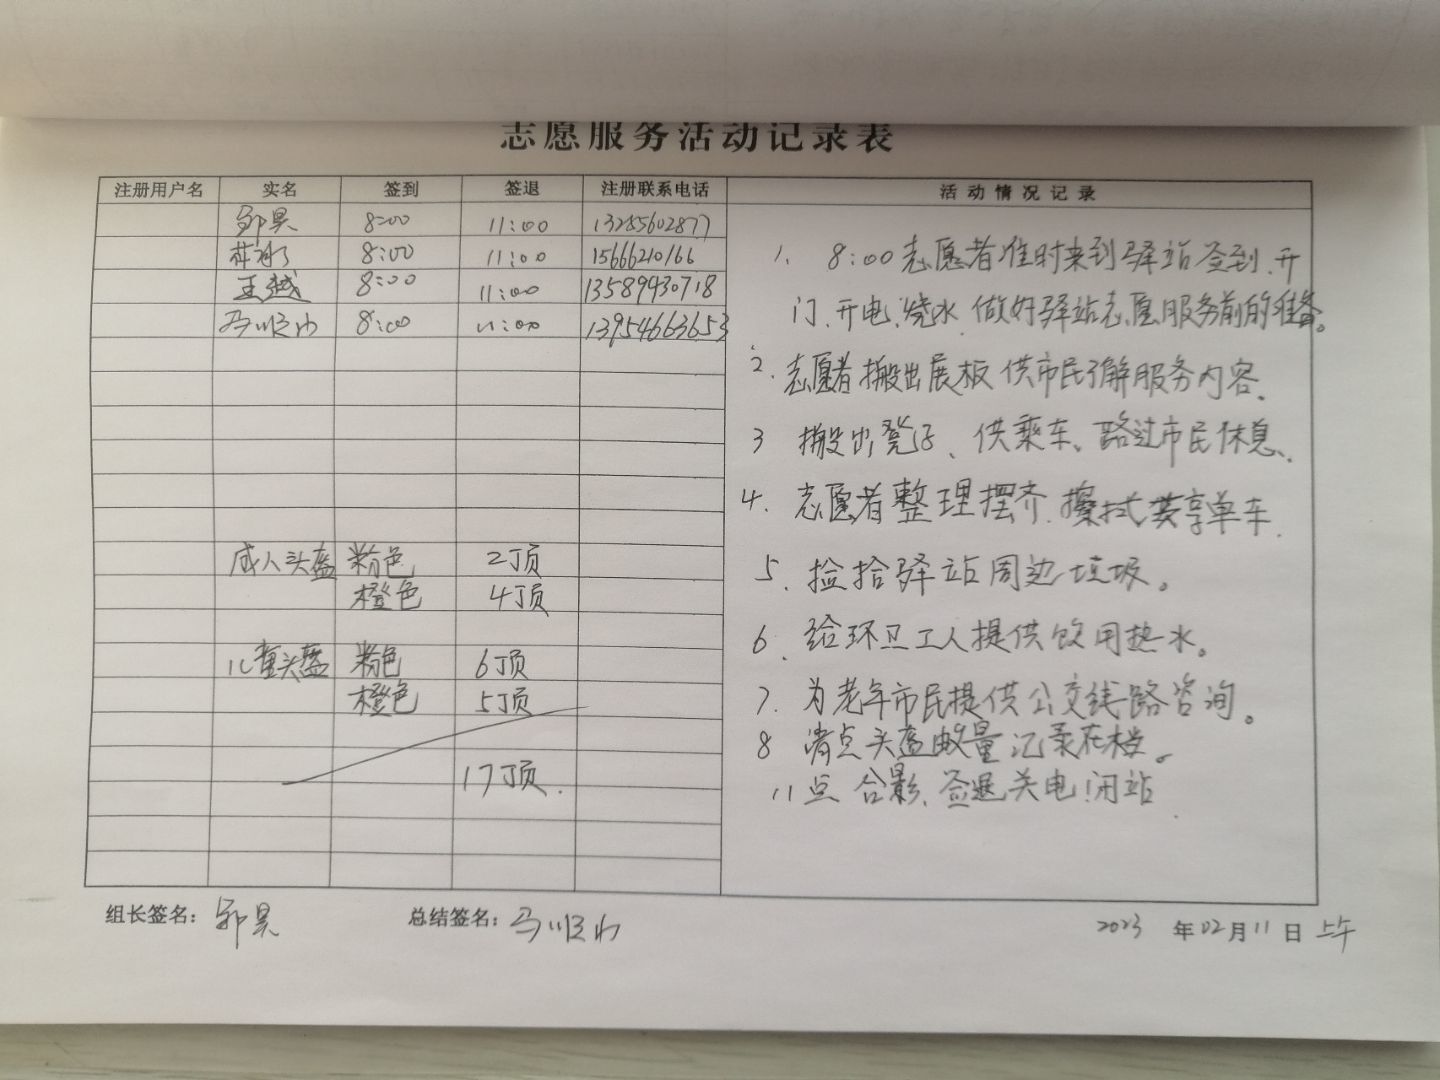 志愿服务活动记录表
注册用户名 实名 签到 签退 注册联系电话 活动情况记录
邹昊 8:00 11:00 13285602877
8:00 11:00 15666210166
王越 8:00 11:00 13589930718
马顺 8:00 11:00 13954663653
成人头盔 粉色 2顶
橙色 4顶
儿童头盔 粉色 6顶
橙色 5顶
17顶.
1. 8:00志愿者准时来到驿站签到、开
门、开电、烧水、做好驿站志愿服务前的准备。
2. 志愿者搬出展板供市民了解服务内容.
3 搬出凳子、供乘车、路过市民休息、
4. 志愿者整理摆齐、擦拭共享单车.
5. 捡拾驿站周边垃圾。
6. 给环卫工人提供饮用热水。
7. 为老年市民提供公交线路咨询。
8 清点头盔数量记录在档。
11点 合影、签退关电!闭站.
组长签名: 邹昊 总结签名: 马顺 2023年02月11日 上午